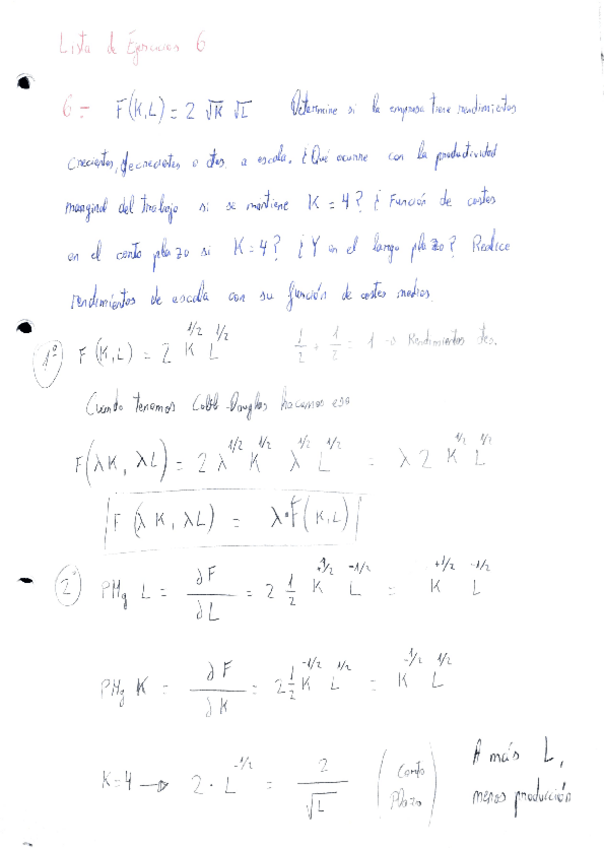 Lista de Ejercicios 6
6 = F(K,L) = 2 √K √L Determine si la empresa tiene rendimientos
crecientes, decrecientes o ctes. a escala. ¿Qué ocurre con la productividad
marginal del trabajo si se mantiene K = 4? ¿Función de costes
en el corto plazo si K = 4? ¿Y en el largo plazo? Realice
rendimientos de escala con su función de costes medios.
1º F(K,L) = 2 K^1/2 L^1/2 1/2 + 1/2 = 1 → Rendimientos ctes.
Cuando tenemos Cobb-Douglas hacemos eso
F(λK, λL) = 2 λ^1/2 K^1/2 λ^1/2 L^1/2 = λ 2 K^1/2 L^1/2
F(λK, λL) = λ·F(K,L)
2º PMg L = ∂F/∂L = 2 1/2 K^+1/2 L^-1/2 = K^+1/2 L^-1/2
PMg K = ∂F/∂K = 2 1/2 K^-1/2 L^1/2 = K^-1/2 L^1/2
K=4 → 2 · L^-1/2 = 2/√L (Corto Plazo) A más L,
menos producción